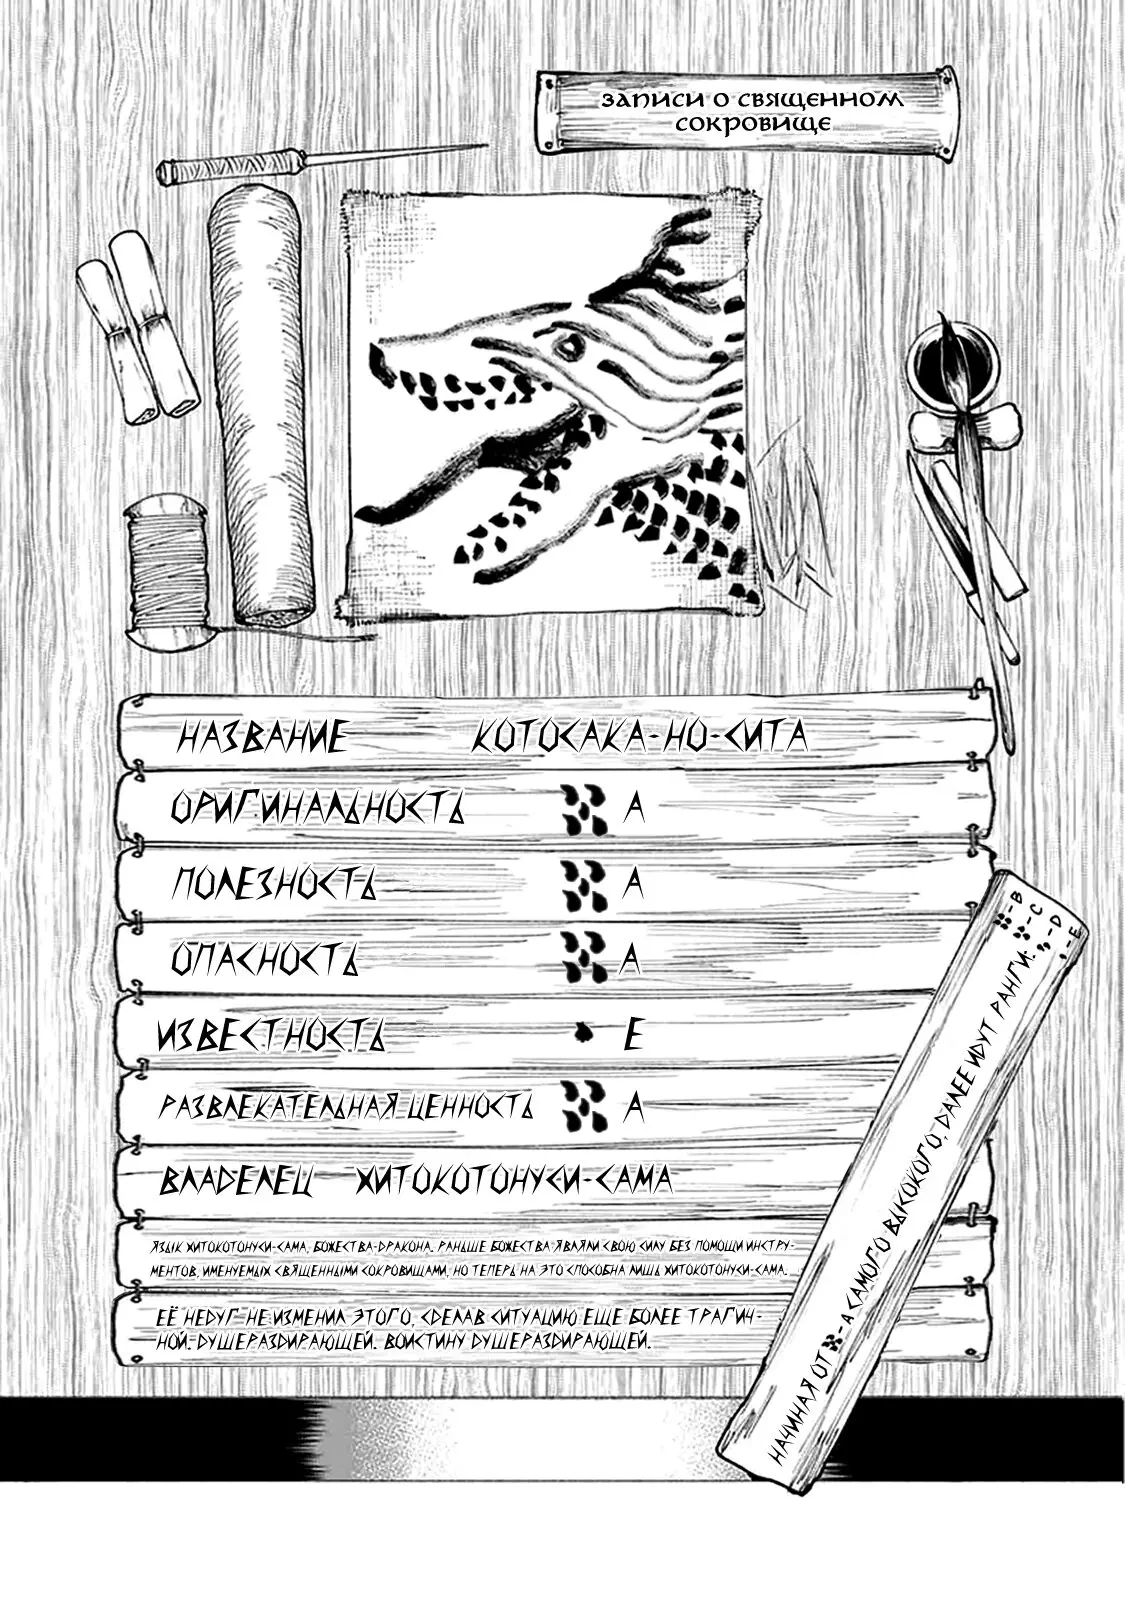 ЗАПИСИ О СВЯЩЕННОМ
СОКРОВИЩЕ
НАЗВАНИЕ КОТОСАКА-НО-СИТА
ОРИГИНАЛЬНОСТЬ A
ПОЛЕЗНОСТЬ A
ОПАСНОСТЬ A
ИЗВЕСТНОСТЬ E
РАЗВЛЕКАТЕЛЬНАЯ ЦЕННОСТЬ A
ВЛАДЕЛЕЦ ХИТОКОТОНУСИ-САМА
ЯЗЫК ХИТОКОТОНУСИ-САМА, БОЖЕСТВА-ДРАКОНА. РАНЬШЕ БОЖЕСТВА ЯВЛЯЛИ СВОЮ СИЛУ БЕЗ ПОМОЩИ ИНСТРУ-
МЕНТОВ, ИМЕНУЕМЫХ СВЯЩЕННЫМИ СОКРОВИЩАМИ, НО ТЕПЕРЬ НА ЭТО СПОСОБНА ЛИШЬ ХИТОКОТОНУСИ-САМА.
ЕЁ НЕДУГ НЕ ИЗМЕНИЛ ЭТОГО, СДЕЛАВ СИТУАЦИЮ ЕЩЕ БОЛЕЕ ТРАГИЧ-
НОЙ. ДУШЕРАЗДИРАЮЩЕЙ. ВОИСТИНУ ДУШЕРАЗДИРАЮЩЕЙ.
НАЧИНАЯ ОТ -A САМОГО ВЫСОКОГО, ДАЛЕЕ ИДУТ РАНГИ:
-B
-C
-D
-E